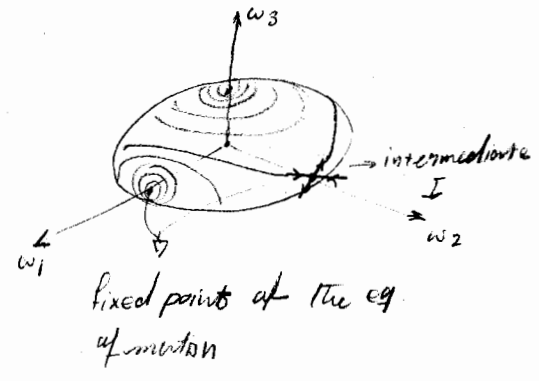 ω3
intermediate
I
ω2
ω1
fixed point of the eq.
of motion